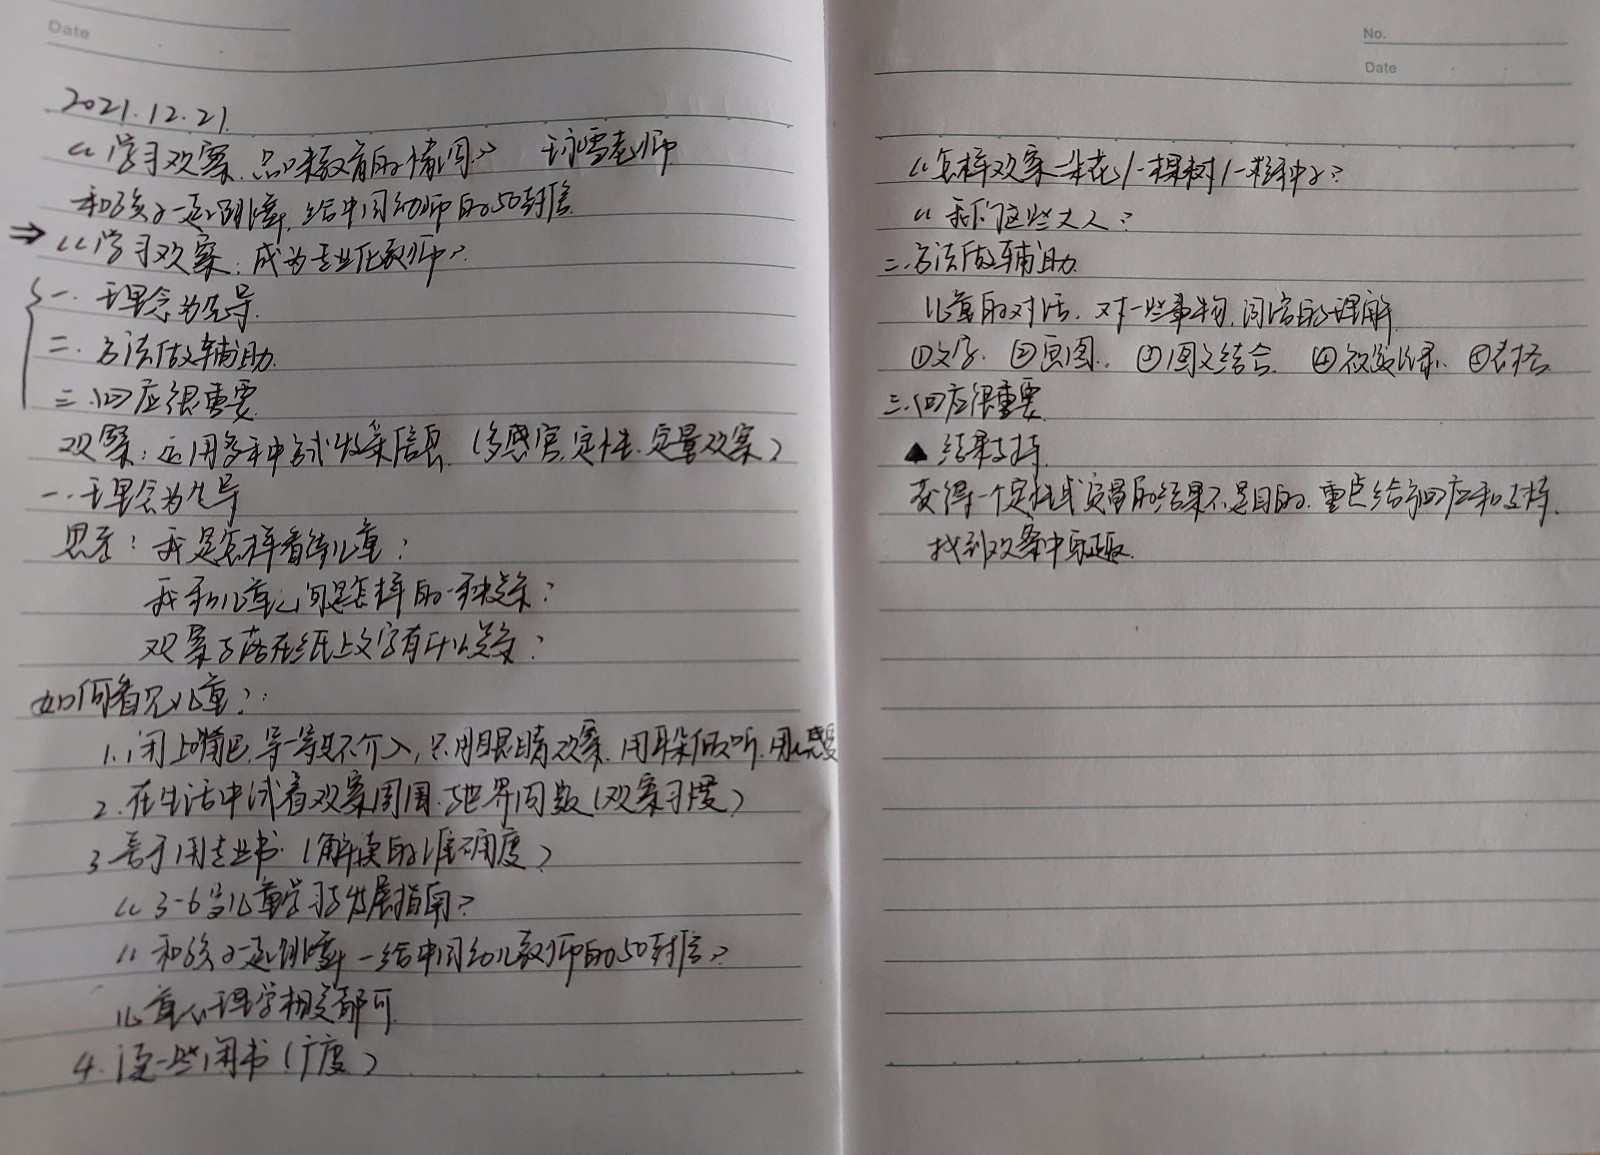 Date
2021.12.21.
《学习观察,品味教育的情问》 老师
和孩子一起跳舞,给中国幼师的50封信
⇒《学习观察:成为专业化教师》
一.理念为先导.
二.方法做辅助.
三.回应很重要.
观察:运用多种方式收集信息.(多感官,定性.定量观察)
一.理念为先导
思考:我是怎样看待儿童?
我和儿童之间是怎样的一种关系?
观察与落在纸上文字有什么关系?
如何看见儿童?:
1.闭上嘴巴,等一等且不介入,只用眼睛观察.用耳朵倾听.用心感受
2.在生活中试着观察周围.与世界同数(观察习惯)
3.善于用专业书.(解读的准确度)
《3-6岁儿童学习与发展指南》
《和孩子一起跳舞—给中国幼儿教师的50封信》
儿童心理学相关都可
4.读一些闲书(广度)
No.
Date
《怎样观察一朵花/一棵树/一粒种子》
《我们这些大人》
二.方法做辅助.
儿童的对话,对一些事物,词语的理解.
①文字. ②画图. ③图文结合. ④视频记录. ⑤表格.
三.回应很重要.
▲ 结果支持.
获得一个定性或定量的结果不是目的.重点给予回应和支持.
找到观察中乐趣.